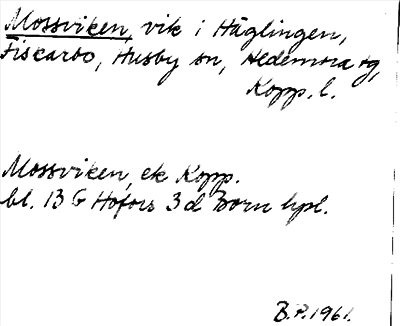 Mossviken, vik i Häglingen,
Fiskarbo, Husby sn, Hedemora tg,
Kopp. l.
Mossviken, ek Kopp.
bl. 13 G Hofors 3 d Born hpl.
B.P. 1961.